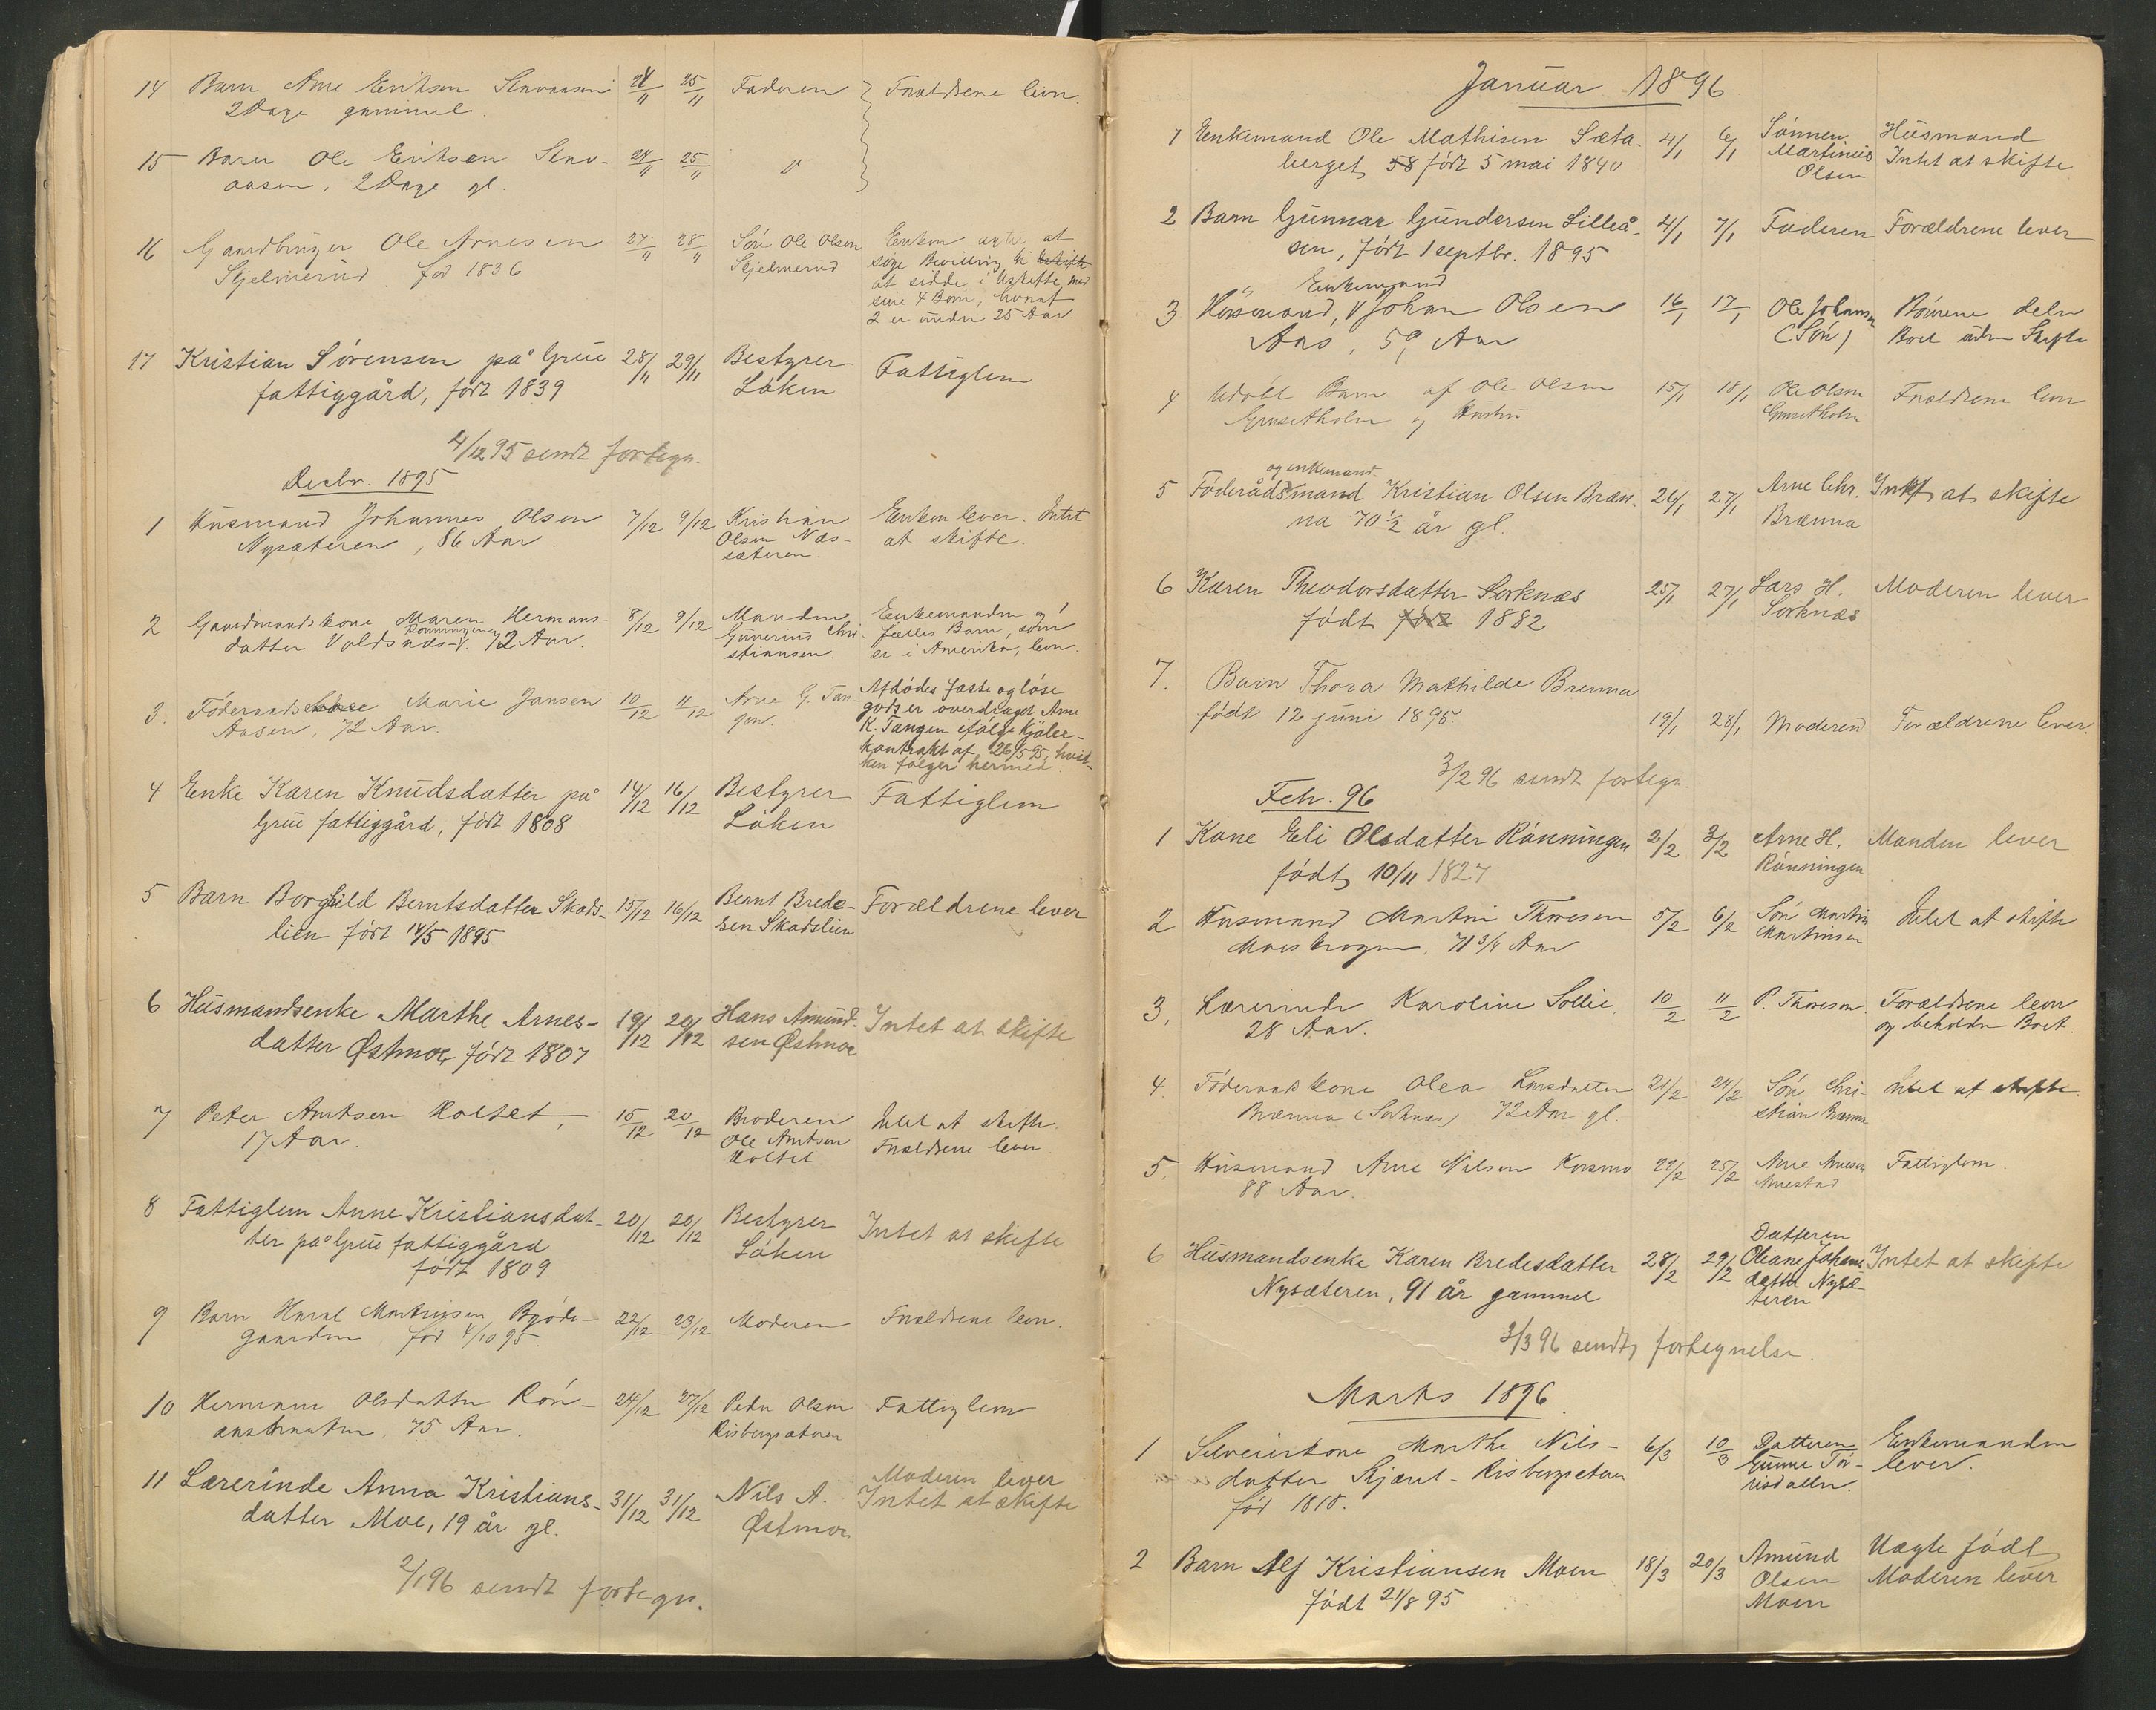 14 Barn Arne Eriksen
2 Dage gammel.
24/11 25/11 Faderen Forældrene lever.
15 Barn Ole Eriksen Skav-
aasen, 2 Dage gl.
24/11 25/11 "
16 Gaardbruger Ole Arnesen
Skjelmerud. fød 1836
27/11 28/11 Søn Ole Olsen
Skjelmerud
Enken agter at
søge Bevilling til
at sidde i Uskifte med
sine 4 Børn, hvoraf
2 er under 25 Aar
17 Kristian Sørensen på Grue
fattiggård, født 1839
28/11 29/11 Bestyrer
Løken
Fattiglem
4/12 95 sendt fortegn.
Decbr. 1895
1 Husmand Johannes Olsen
Nysæteren, 86 Aar
7/12 9/12 Kristian
Olsen Næs-
sæteren.
Enken lever. Intet
at skifte.
2 Gaardmandskone Maren Hermans-
datter Voldsnæs-Rønningen V. 72 Aar.
8/12 9/12 Manden
Gunerius Chri-
stiansen
Enkemanden og 1
fælles Barn, som
er i Amerika, lever.
3. Føderaads Marie Jansen
Aasen, 72 Aar.
10/12 11/12 Arne G. Tan-
gen.
Afdødes faste og løse
gods er overdraget Arne
K. Tangen ifølge kjøbe-
kontrakt af 26/5 95, hvil-
ken følger hermed.
4 Enke Karen Knudsdatter på
Grue fattiggård, født 1808
14/12 16/12 Bestyrer
Løken
Fattiglem
5 Barn Borghild Berntsdatter Skads-
lien født 14/5 1895
15/12 16/12 Bernt Brede-
sen Skadslien
Forældrene lever
6 Husmandsenke Marthe Arnes-
datter Østmoe født 1807
19/12 20/12 Hans Amund-
sen Østmoe
Intet at skifte
7 Peter Arntsen Holtet,
17 Aar.
15/12 20/12 Broderen
Ole Arntsen
Holtet
Intet at skifte.
Forældrene lever
8 Fattiglem Anne Kristiansdat-
ter på Grue fattiggård
født 1809
20/12 20/12 Bestyrer
Løken
Intet at skifte
9 Barn Haral Martinsen Bygde-
gaarden fød 4/10 95.
22/12 23/12 Moderen Forældrene lever.
10 Hermane Olsdatter Røn-
75 Aar.
24/12 27/12 Peder Olsen
Risbergsæteren
Fattiglem
11 Lærerinde Anna Kristians-
datter Moe, 19 år gl.
31/12 31/12 Nils A.
Østmoe
Moderen lever
Intet at skifte
2/1 96 sendt fortegn.
Januar 1896
1 Enkemand Ole Mathisen Sæta-
berget, 58 født 5 mai 1840
4/1 6/1 Sønnen
Martinius
Olsen
Husmand
Intet at skifte
2 Barn Gunnar Gundersen Lilleå-
sen, født 1 septbr. 1895
4/1 7/1 Faderen Forældrene lever
Enkemand
3 Husmand, V Johan Olsen
Aas, 59 Aar
16/1 17/1 Ole Johansen
(Søn)
Børnene deler
Boet uden Skifte
4 Udøbt Barn af Ole Olsen
Grusetholm og Hustru
15/1 18/1 Ole Olsen
Grusetholm
Forældrene lever
og enkemand
5 Føderådsmand Kristian Olsen Bræn-
na 70 1/2 år gl.
26/1 27/1 Arne Chr.
Brænna
Intet at skifte
6 Karen Theodorsdatter Sorknæs
født født 1882
25/1 27/1 Lars H.
Sorknæs
Moderen lever
7. Barn Thora Mathilde Brenna
født 12 juni 1895
19/1 28/1 Moderen Forældrene lever.
3/2 96 sendt fortegn.
Febr. 96
1 Kone Eli Olsdatter Rønningen
født 10/11 1827
2/2 3/2 Arne H.
Rønningen
Manden lever
2 Husmand Martin Thoresen
71 3/4 Aar
5/2 6/2 Søn Martin
Martinsen
Intet at skifte
3. Lærerinde Karoline Sollie,
28 Aar.
10/2 11/2 P. Thoresen. Forældrene lever
og beholder Boet.
4. Føderaadskone Olea Larsdatter
Brænna (Sorknæs) 72 Aar gl.
21/2 24/2 Søn Chri-
stian Brænna
Intet at skifte.
5. Husmand Arne Nilsen Korsmo
88 Aar.
22/2 25/2 Arne Arnesen
Fattiglem.
6 Husmandsenke Karen Bredesdatter
Nysæteren, 91 år gammel
28/2 29/2 Datteren
Oliane Johans
datter Nysæ-
teren
Intet at skifte
3/3 96 sendt fortegnelse.
Marts 1896
1 Selveierkone Marthe Nils-
datter Skjæret - Risbergsæteren
fød 1818.
6/3 10/3 Datteren
Gunne Tor-
Enkemanden
lever.
2 Barn Alf Kristiansen Moen
født 21/8 95
18/3 20/3 Amund
Olsen
Moen
Uægte født
Moderen lever